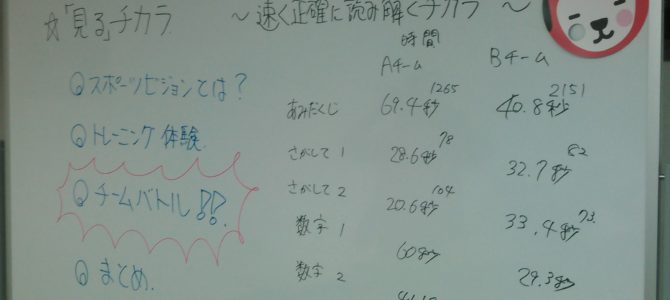 ☆「見る」チカラ ～速く正確に読み解くチカラ～
◎スポーツビジョンとは？
◎トレーニング体験
◎チームバトル!!
◎まとめ
時間
Aチーム Bチーム
あみだくじ 69.4秒 1265 40.8秒 2151
さがして1 28.6秒 78 32.7秒 82
さがして2 20.6秒 104 33.4秒 73
数字1 60秒 29.3秒
数字2